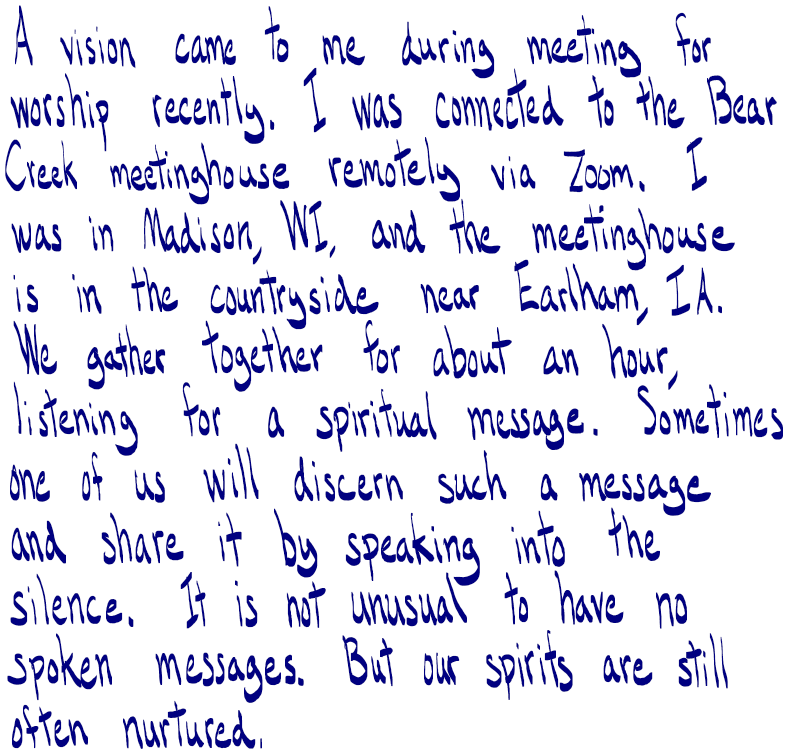 A vision came to me during meeting for
worship recently. I was connected to the Bear
Creek meetinghouse remotely via Zoom. I
was in Madison, WI, and the meetinghouse
is in the countryside near Earlham, IA.
We gather together for about an hour,
listening for a spiritual message. Sometimes
one of us will discern such a message
and share it by speaking into the
silence. It is not unusual to have no
spoken messages. But our spirits are still
often nurtured.